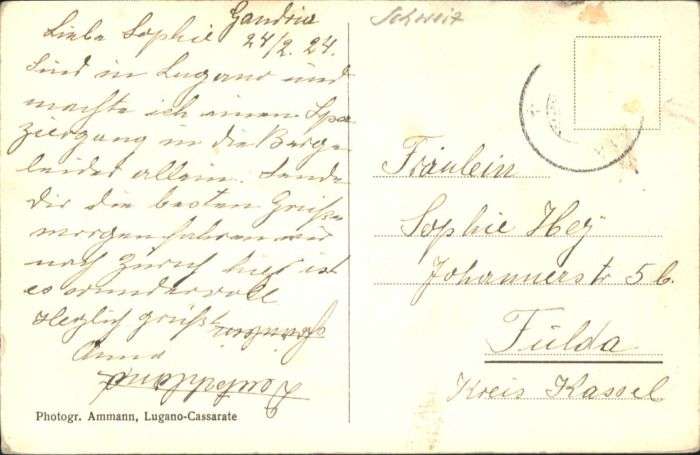 Gandria
Liebe Sophie 24/2. 24.
Sind in Lugano und
machte ich einen Spa
ziergang in die Berge
leider allein. Sende
Dir die besten Grüße
morgen fahren wir
nach Zürich hier ist
es wundervoll
Herzlich grüßt
Anna
Photogr. Ammann, Lugano-Cassarate
Schweiz
Fräulein
Sophie Hey
Johannesstr 5 b.
Fulda
Kreis Kassel